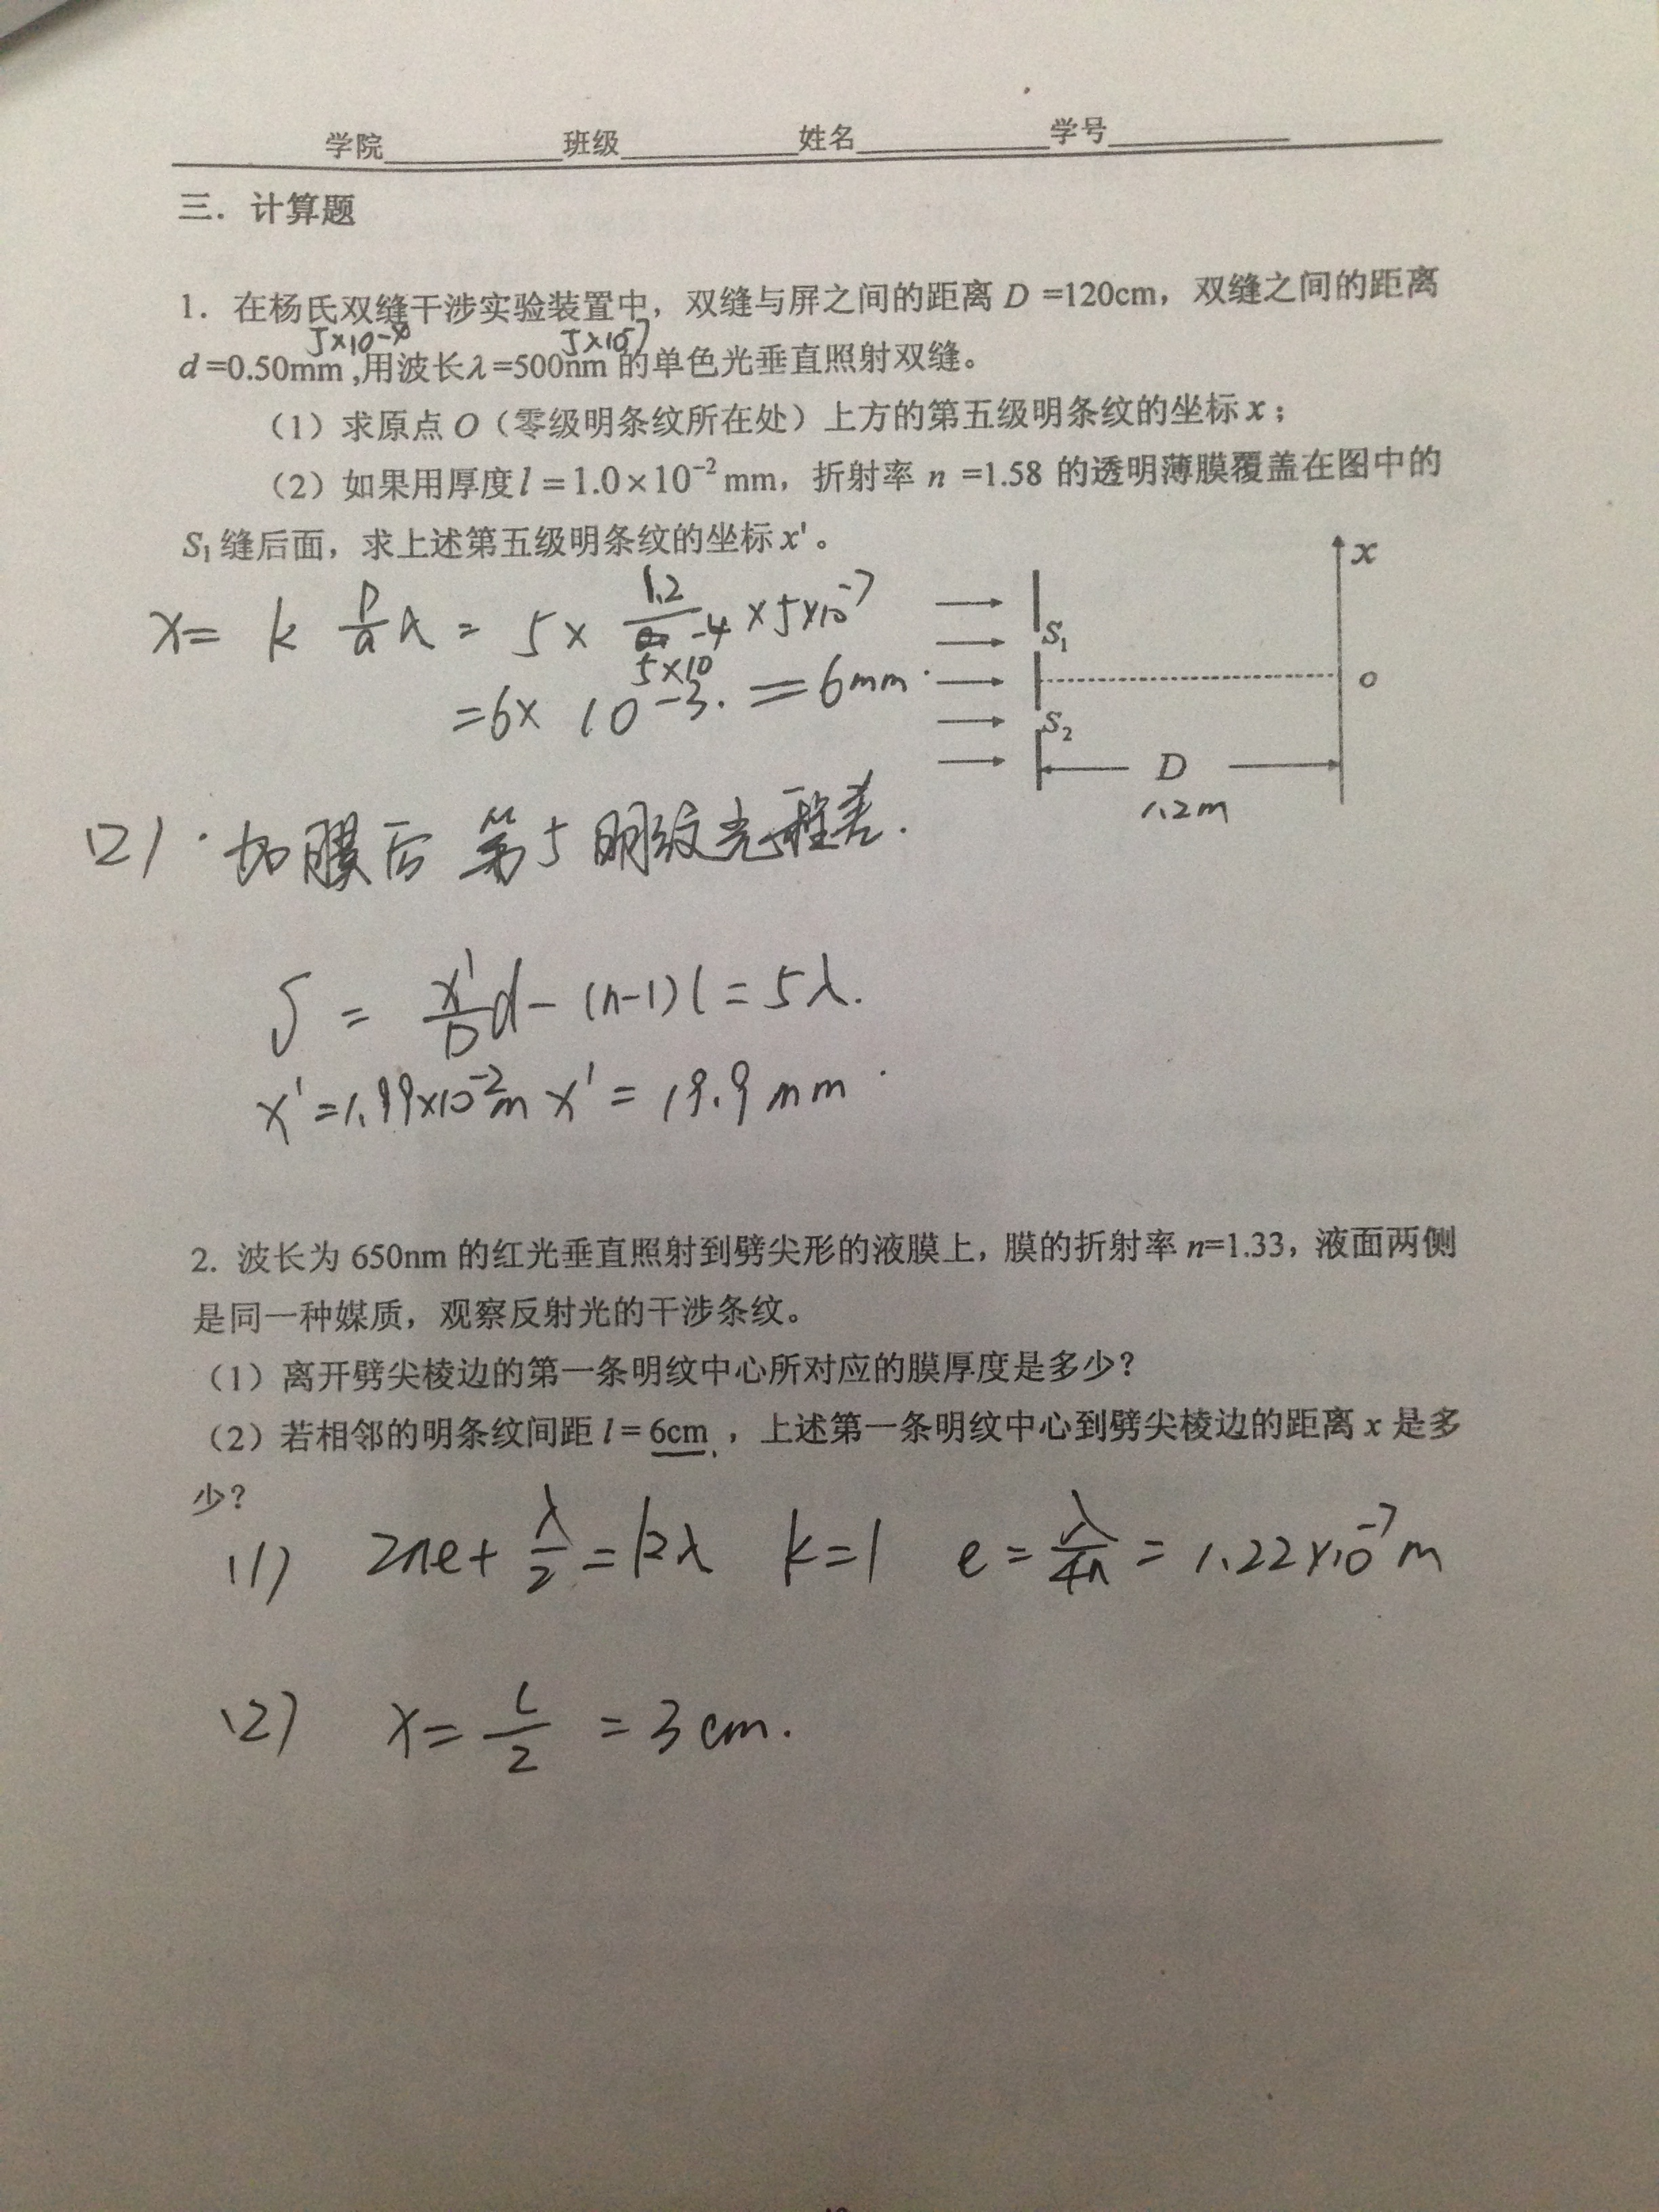 学院 班级 姓名 学号
三．计算题
1．在杨氏双缝干涉实验装置中，双缝与屏之间的距离 D =120cm，双缝之间的距离
5×10-4 5×10-7
d =0.50mm ,用波长λ=500nm 的单色光垂直照射双缝。
（1）求原点 O（零级明条纹所在处）上方的第五级明条纹的坐标 x；
（2）如果用厚度 l = 1.0×10⁻² mm，折射率 n =1.58 的透明薄膜覆盖在图中的
S₁ 缝后面，求上述第五级明条纹的坐标 x'。
x= k D/d λ = 5× 1.2/5×10-4 ×5×10-7
=6× 10-3. =6mm.
x
S₁
o
S₂
D
1.2m
(2). 加膜后 第5明纹光程差.
δ = x'/D d- (n-1)l = 5λ.
x'=1.99×10-2m x' = 19.9mm.
2. 波长为 650nm 的红光垂直照射到劈尖形的液膜上，膜的折射率 n=1.33，液面两侧
是同一种媒质，观察反射光的干涉条纹。
（1）离开劈尖棱边的第一条明纹中心所对应的膜厚度是多少？
（2）若相邻的明条纹间距 l = 6cm ，上述第一条明纹中心到劈尖棱边的距离 x 是多
少？
(1) 2ne+ λ/2 =kλ k=1 e = λ/4n = 1.22×10-7 m
(2) x= L/2 = 3cm.